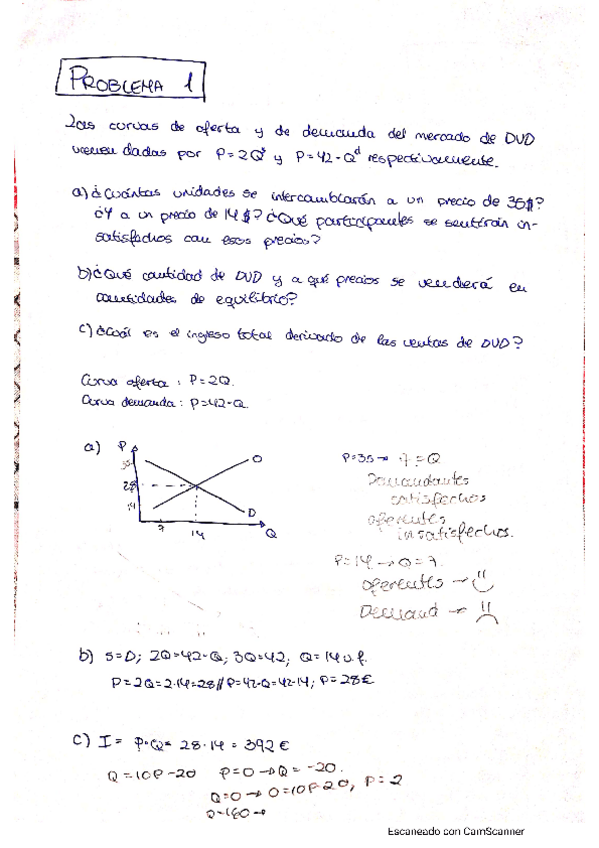 PROBLEMA 1
Las curvas de oferta y de demanda del mercado de DVD
vienen dadas por P=2Qˢ y P=42-Qᵈ respectivamente.
a) ¿Cuántas unidades se intercambiarán a un precio de 35$?
¿Y a un precio de 14$? ¿Qué participantes se sentirán in-
satisfechos con esos precios?
b) ¿Qué cantidad de DVD y a qué precios se venderá en
cantidades de equilibrio?
c) ¿Cuál es el ingreso total derivado de las ventas de DVD?
Curva oferta : P=2Q.
Curva demanda : P=42-Q
a) P
35
28
14
O
D
7
14
Q
P=35→ 7=Q
Demandantes
satisfechos
oferentes
insatisfechos.
P=14→Q=7.
oferentes →
Demand →
b) S=D; 2Q=42-Q; 3Q=42; Q=14 u.f.
P=2Q=2·14=28//P=42-Q=42-14; P=28€
c) I= P·Q= 28·14 = 392€
Q=10P-20 P=0→Q=-20.
Q=0→0=10P-20, P=2
Escaneado con CamScanner